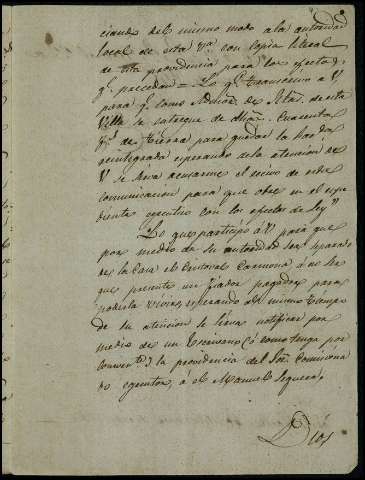 ciando del mismo modo a la autoridad
local de esta va con copia literal
de esta providencia para los efectos
q. procedan = Lo q. transcribo a V
para q. como Admor. de de esta
Villa se satisfaga de dhas. cuarenta
ps. de tierra para quedar la
reintegrada esperando de la atencion de
V se sirva acusarme el recivo de esta
comunicacion para que obre en el espe
diente egecutivo con los efectos de ley"
Lo que participo á V. para que
por medio de su autoridad sea separado
de la Casa el Cristoval Carmona á no ser
que presente un fiador pagador para
poderla vivir, esperando al mismo tiempo
de su atencion se sirva notificar por
medio de un Escrivano ó como tenga por
conver.te la providencia del Sor. Comisiona
do egecutor, á el Manuel Segueza.
Dios